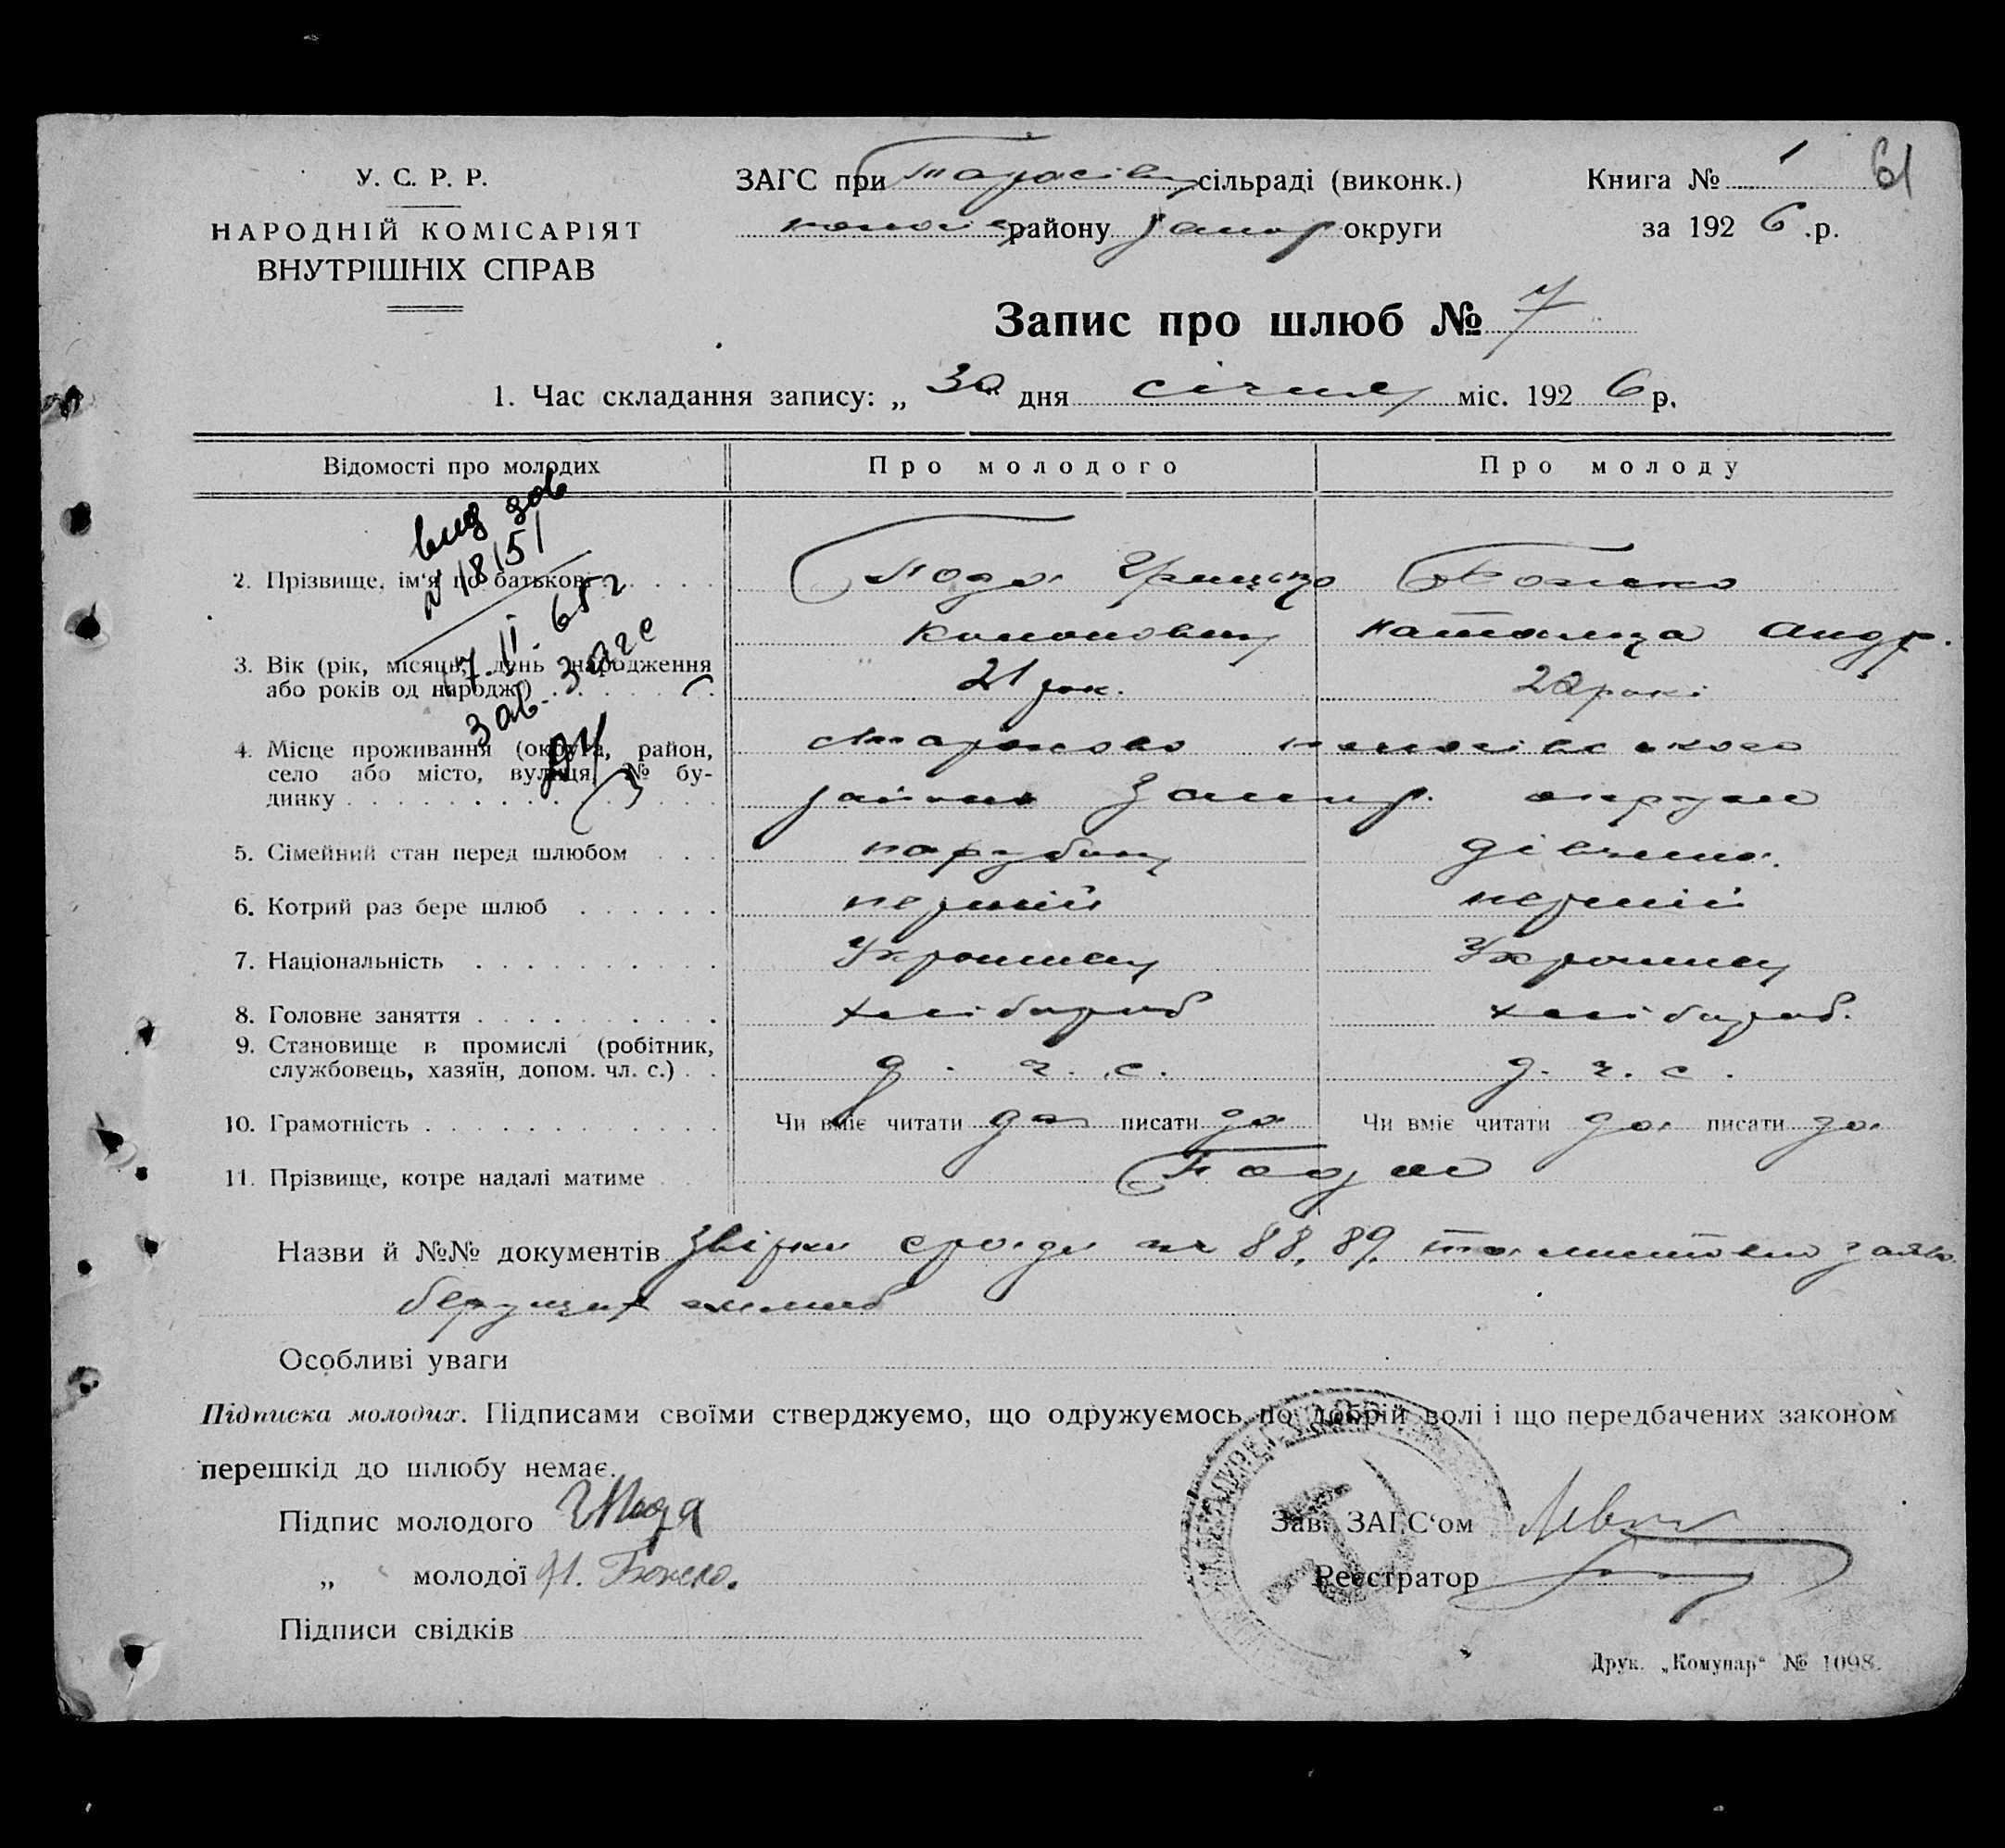 У. С. Р. Р.
НАРОДНІЙ КОМІСАРІЯТ
ВНУТРІШНІХ СПРАВ
ЗАГС при Тарасівц сільраді (виконк.)
району Запор округи
Книга № 1 61
за 192 6 .р.
Запис про шлюб № 7
1. Час складання запису: „ 30 " дня січня міс. 192 6 р.
Відомості про молодих
Про молодого
Про молоду
вид зав
№ 18151
17. II. 65 г
Зав. Загс
2. Прізвище, ім'я по батькові
Пода Грицько
Кононович
Божко
Наталя Андр.
3. Вік (рік, місяць, день народження
або років од народж.)
21 рок.
22 роки
4. Місце проживання (округа, район,
село або місто, вулиця, № бу-
динку
району Запор. округи
5. Сімейний стан перед шлюбом
парубок
дівчина.
6. Котрий раз бере шлюб
перший
перший
7. Національність
Україниц
Україниц
8. Головне заняття
хлібороб
хлібороб.
9. Становище в промислі (робітник,
службовець, хазяїн, допом. чл. с.)
д. ч. с.
д. ч. с.
10. Грамотність
Чи вміє читати да писати да
Чи вміє читати да писати да
11. Прізвище, котре надалі матиме
Пода
Назви й №№ документів Звірки сроди № 88, 89, та заяв.
берущих шлюб
Особливі уваги
Підписка молодих. Підписами своїми стверджуємо, що одружуємось по добрій волі і що передбачених законом
перешкід до шлюбу немає.
Підпис молодого Г Пода
„ молодої Н. Божко.
Підписи свідків
Зав. ЗАГС'ом
Реєстратор
Друк. „Комунар" № 1098.